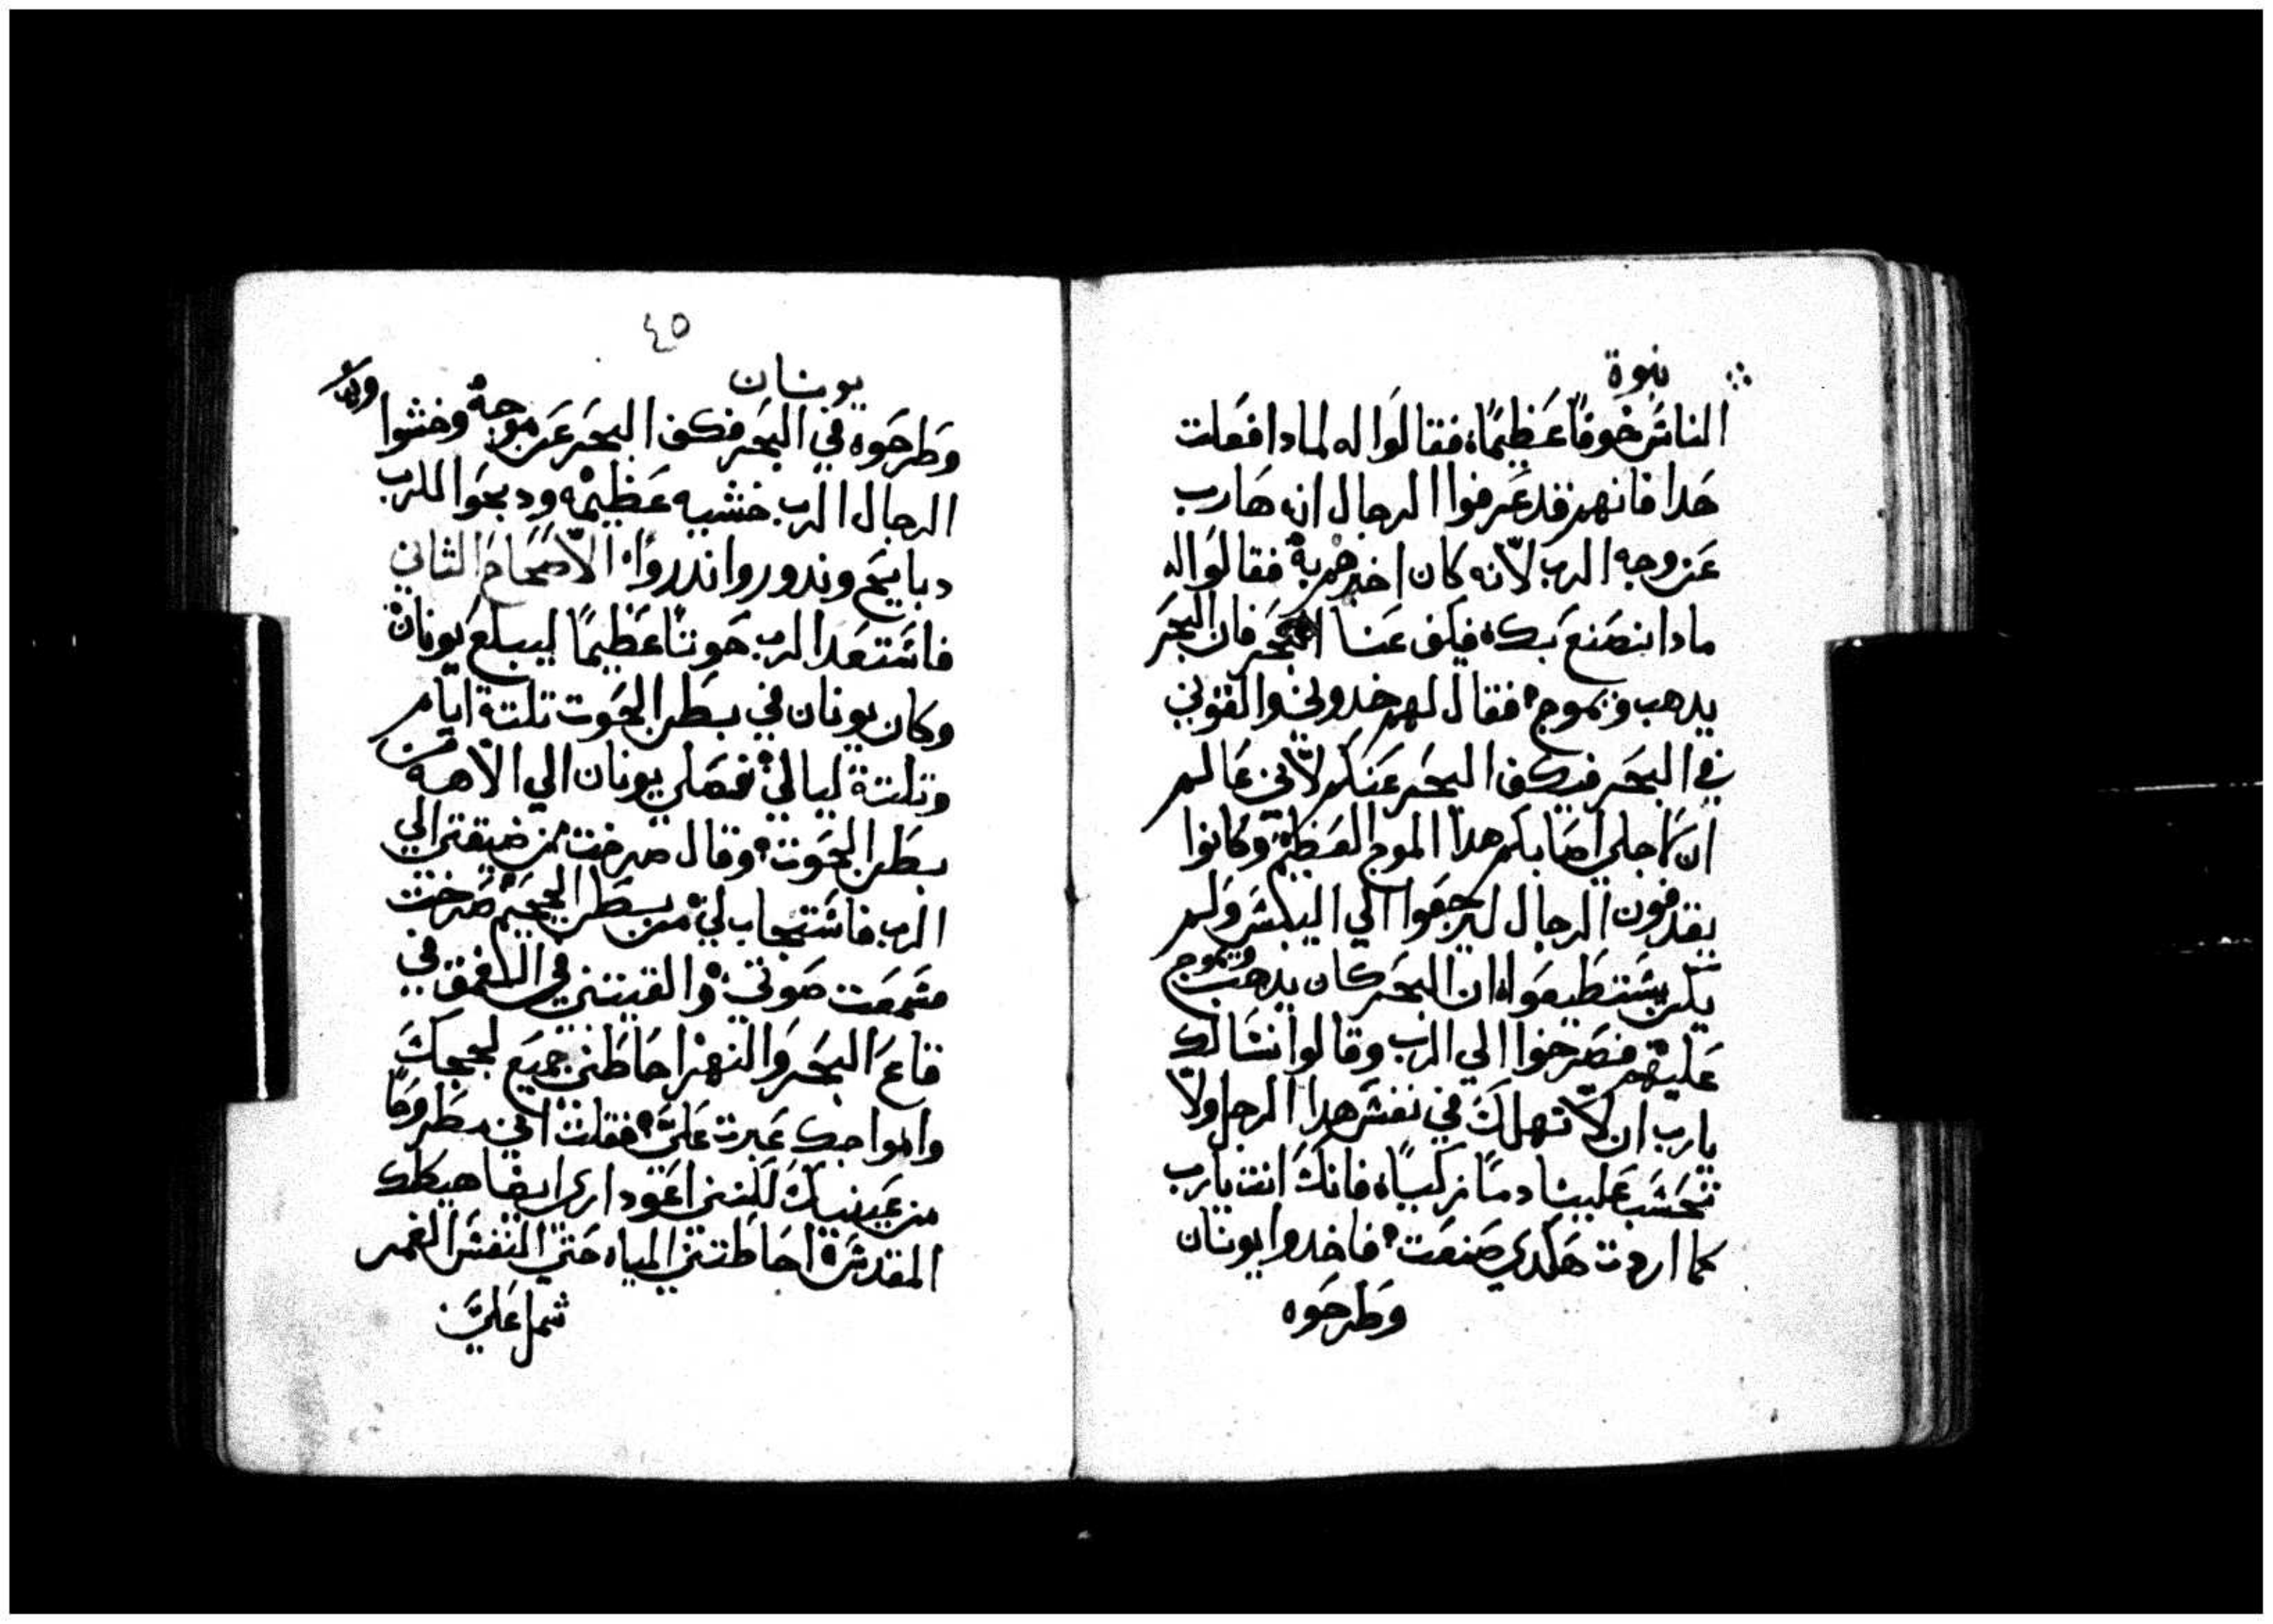 نبوة
الناس خوفًا عَظيمًا، فقالوا له لمادا فعَلت
هَدا فانهم قد عَرفوا الرجال انه هَارب
عَن وجه الرب لأنه كان اخبرهم به فقالوا له
مادا نصَنع بَك، فيكف عَنا البحَر فان البحَر
يدهب ويموج، فقال لهم خدوني والقوني
في البحَر فيكف البحَر عَنكم لأني عَالم
ان من اجلي اصَابكم هدا الموج العَظيم، وكانوا
يقدفون الرجال ليرجعَوا الي اليبس ولم
يكن يسَتطيعَوا، ان البحَر كان يدهب ويموج
عَليهم فصَرخوا الي الرب وقالوا نسَالك
يارب ان لا تهلك في نفسَ هدا الرجل ولا
تحَسَب عَلينا دمًا زكيًا، فانك انت يارب
كما اردت هَكدي صَنعَت، فاخدوا يونان
وَطرحَوه
٤٥
يونان
وَطرحَوه في البحَر فكف البحَر عَن موجه وخشوا
الرجال الرب خشيه عَظيمه ودبحَوا للرب
دبايح وندور واندروا، الأصحَاح الثاني
فاسَتعَد الرب حَوتًا عَظيمًا ليبلع يونان
وكان يونان في بطن الحَوت تلتة ايام
وتلتة ليالي، فصَلي يونان الي الاهه من
بطَن الحَوت، وقال صرخت من ضيقتي الي
الرب فاسَتجاب لي، من بطَن الجحَيم صَرخت
فسَمعَت صَوتي، والقيتني في العمق في
قاع البحَر والنهر احَاطني جميع لججك
وامواجك عَبرت عَليَّ، فقلت اني مطَروحًا
من عَينيك لكنني اعَود اري ايضا هيكلك
المقدسَ، احَاطتني المياه حَتي النفسَ الغمر
شمل عَليَّ